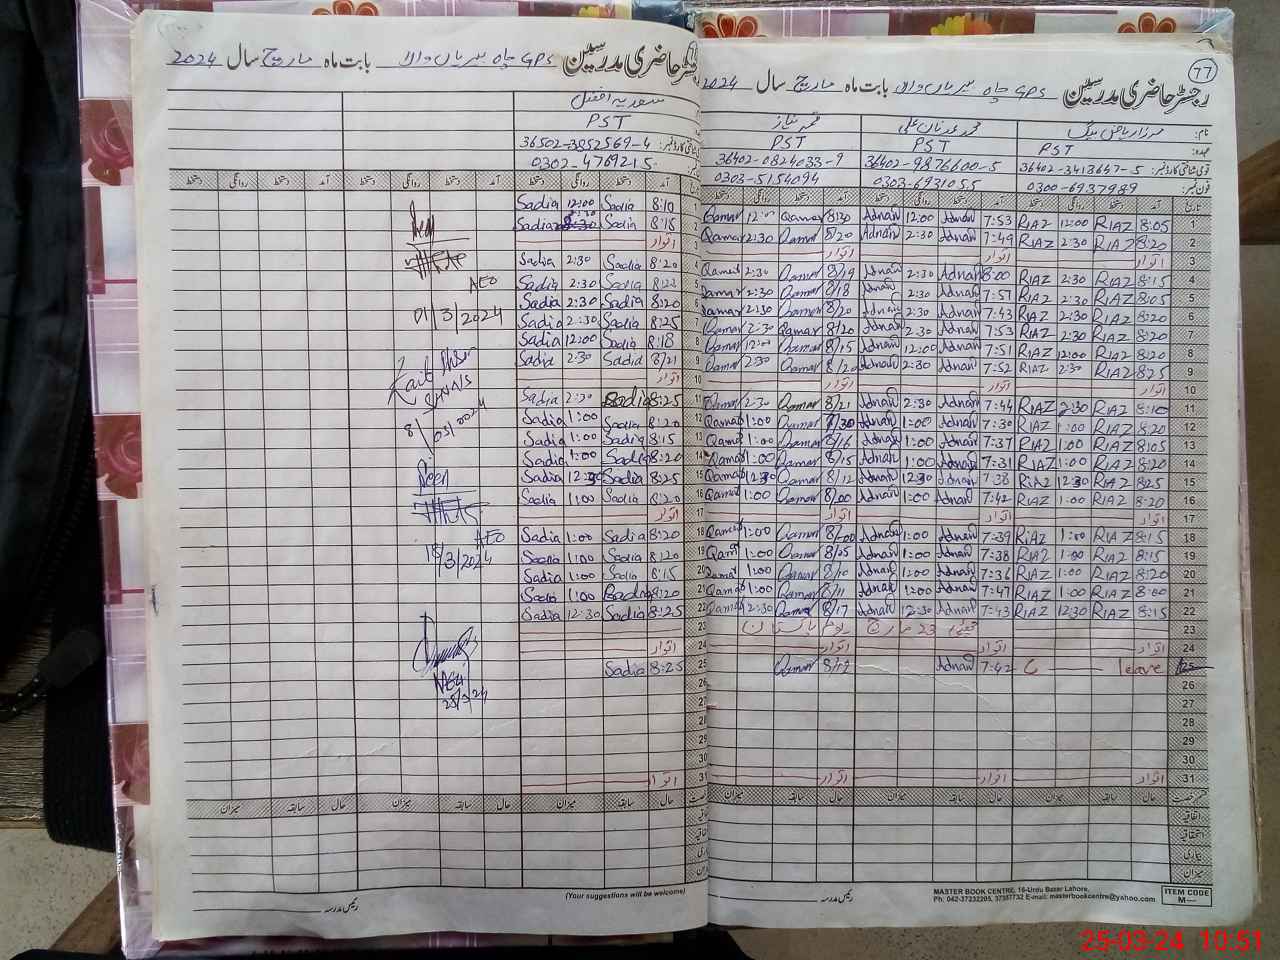 77
رجسٹر حاضری مدرسین GPS چاہ بابت ماہ مارچ سال 2024
نام:
عہدہ: PST PST PST
قومی شناختی کارڈ نمبر: 36402-3413647-5 36402-9876600-5 36402-0824033-9
فون نمبر: 0300-6937989 0303-6931055 0303-5154094
تاریخ آمد دستخط روانگی دستخط آمد دستخط روانگی دستخط آمد دستخط روانگی دستخط
1 8:05 RIAZ 12:00 RIAZ 7:53 Adnan 12:00 Adnan 8/20 Qamar 12:00 Qamar
2 8:20 RIAZ 2:30 RIAZ 7:49 Adnan 2:30 Adnan 8/20 Qamar 2:30 Qamar
3 اتوار اتوار اتوار
4 8:15 RIAZ 2:30 RIAZ 8:00 Adnan 2:30 Adnan 8/19 Qamar 2:30 Qamar
5 8:05 RIAZ 2:30 RIAZ 7:57 Adnan 2:30 Adnan 8/18 Qamar 2:30 Qamar
6 8:20 RIAZ 2:30 RIAZ 7:43 Adnan 2:30 Adnan 8/20 Qamar 2:30 Qamar
7 8:20 RIAZ 2:30 RIAZ 7:53 Adnan 2:30 Adnan 8/20 Qamar 2:30 Qamar
8 8:20 RIAZ 12:00 RIAZ 7:51 Adnan 12:00 Adnan 8/15 Qamar 12:00 Qamar
9 8:25 RIAZ 2:30 RIAZ 7:52 Adnan 2:30 Adnan 8/20 Qamar 2:30 Qamar
10 اتوار اتوار اتوار
11 8:10 RIAZ 2:30 RIAZ 7:44 Adnan 2:30 Adnan 8/21 Qamar 2:30 Qamar
12 8:20 RIAZ 1:00 RIAZ 7:30 Adnan 1:00 Adnan Qamar 1:00 Qamar
13 8:05 RIAZ 1:00 RIAZ 7:37 Adnan 1:00 Adnan 8/16 Qamar 1:00 Qamar
14 8:20 RIAZ 1:00 RIAZ 7:31 Adnan 1:00 Adnan 8/15 Qamar 1:00 Qamar
15 8:25 RIAZ 12:30 RIAZ 7:38 Adnan 12:30 Adnan 8/12 Qamar 12:30 Qamar
16 8:20 RIAZ 1:00 RIAZ 7:42 Adnan 1:00 Adnan 8/00 Qamar 1:00 Qamar
17 اتوار اتوار اتوار
18 8:15 RIAZ 1:00 RIAZ 7:39 Adnan 1:00 Adnan 8/00 Qamar 1:00 Qamar
19 8:15 RIAZ 1:00 RIAZ 7:38 Adnan 1:00 Adnan 8/05 Qamar 1:00 Qamar
20 8:20 RIAZ 1:00 RIAZ 7:36 Adnan 1:00 Adnan 8/10 Qamar 1:00 Qamar
21 8:00 RIAZ 1:00 RIAZ 7:47 Adnan 1:00 Adnan 8/11 Qamar 1:00 Qamar
22 8:15 RIAZ 12:30 RIAZ 7:43 Adnan 12:30 Adnan 8/17 Qamar 12:30 Qamar
23 چھٹی 23 مارچ یوم پاکستان
24 اتوار اتوار اتوار
25 leave C 7:42 Adnan 8/12 Qamar
26
27
28
29
30
31 اتوار اتوار اتوار
حال سابقہ میزان حال سابقہ میزان حال سابقہ میزان
اتفاقیہ
استحقاقیہ
بیماری
میزان
رئیس مدرسہ
MASTER BOOK CENTRE, 16-Urdu Bazar Lahore,
Ph: 042-37232205, 37357732 E-mail: masterbookcentre@yahoo.com
ITEM CODE
M—
رجسٹر حاضری مدرسین GPS چاہ بابت ماہ مارچ سال 2024
سعدیہ افضل
PST
36502-3852569-4
0302-4769215
آمد دستخط روانگی دستخط آمد دستخط روانگی دستخط
1 8:10 Sadia 12:00 Sadia
2 8:15 Sadia 2:30 Sadia
3 اتوار
4 8:20 Sadia 2:30 Sadia
5 8:20 Sadia 2:30 Sadia
6 8:20 Sadia 2:30 Sadia
7 8:25 Sadia 2:30 Sadia
8 8:18 Sadia 12:00 Sadia
9 8/21 Sadia 2:30 Sadia
10 اتوار
11 8:25 Sadia 2:30 Sadia
12 8:20 Sadia 1:00 Sadia
13 8:15 Sadia 1:00 Sadia
14 8:20 Sadia 1:00 Sadia
15 8:25 Sadia 12:30 Sadia
16 8:20 Sadia 1:00 Sadia
17 اتوار
18 8:20 Sadia 1:00 Sadia
19 8:20 Sadia 1:00 Sadia
20 8:15 Sadia 1:00 Sadia
21 8:20 Sadia 1:00 Sadia
22 8:25 Sadia 12:30 Sadia
23
24 اتوار
25 8:25 Sadia
26
27
28
29
30
31 اتوار
AEO
01/3/2024
8/03/2024
Seen
AEO
18/3/2024
25/3/24
حال سابقہ میزان حال سابقہ میزان
(Your suggestions will be welcome)
رئیس مدرسہ
25-03-24 10:51